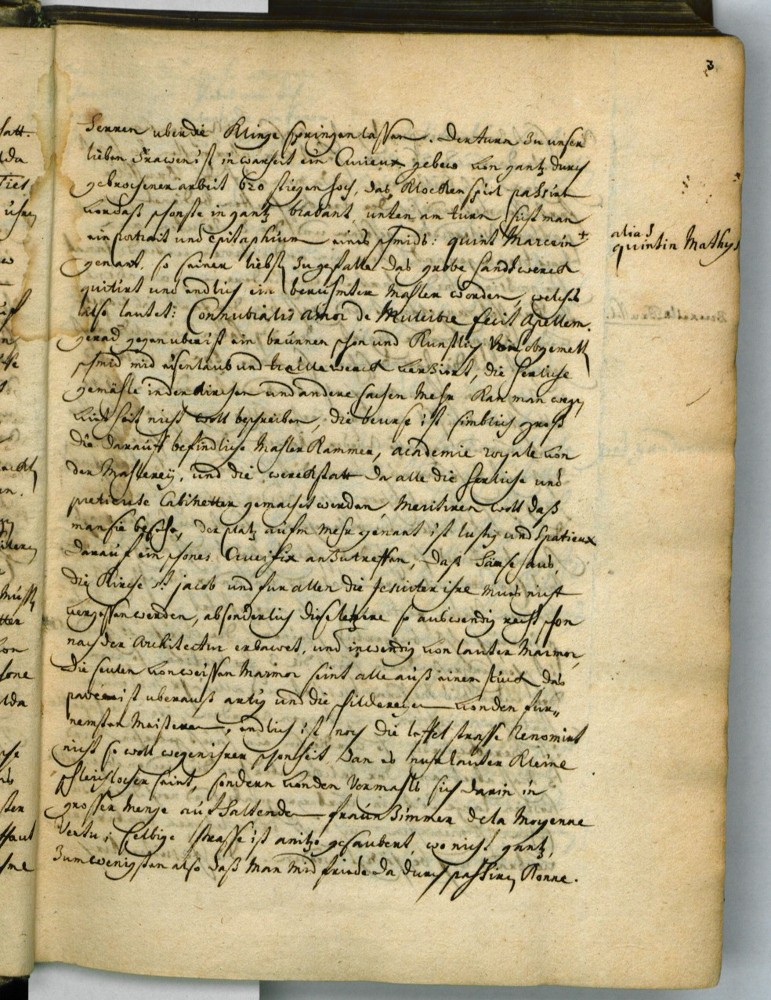 3
Herren uber die Klinge springen lassen. Der turn zu unser
lieben frawen ist in warheit ein Curieux gebew von gantz durch
gebrochener arbeit 620 stiegen hoch, das Klockenspiel passirt
vor das schonste in gantz brabant, unten am turn siehst man
ein portrait und epitaphium eines schmids: quint Marcein +
genant, so seiner liebst zu gefallen das grobe handtwerck
quitirt und endlich ein beruhmter mahler worden, welches
also lautet: Connubialis amor de Mulcibre fecit Apellem.
gerad gegen uber ist ein brunnen schon und Kunstlich von obgemelt
schmid mit eisenlaub und werck versirt, die herliche
gemählte in der Kirchen und andere sachen mehr Kan man wegen
Kurtze zeit nicht woll beschreiben, die beurse ist simblich gross
die darauff befindliche Mahler Kammer, academie royale von
der Mahlereij, und die werckstatt da alle die herliche und
pretieuse Cabinetter gemacht werden meritiren woll dass
man sie besehe, der platz aufm Mehr genant ist lustig und spatieux
darauf ein schones Crucifix anzutreffen, dass hause aus,
die Kirche St: jacob und fur allen die Jesuiter ihre mus nicht
vergessen werden, absonderlich diese letztere so auswendig recht schon
nach der Architectur erbawet, und inwendig von lauter Marmor,
die seulen von weissen Marmor seint alle auss einem stuck das
pavee ist uberauss artig und die schildereien von den fur„
nemsten Meisteren, endlich ist noch die lepel strasse Renomirt
nicht so woll wegen ihrer schonheit dan es nur lauter Kleine
schleichlocher seint, sondern von den vormahls sich darin in
grosser menge aufhaltenden frauenzimmer de la Moyenne
Vertu; selbige strasse ist anitzo gesaubert, wo nicht gantz,
zum wenigsten also dass Man mit friede da durch passiren Konne.
alias
quintin Mathys